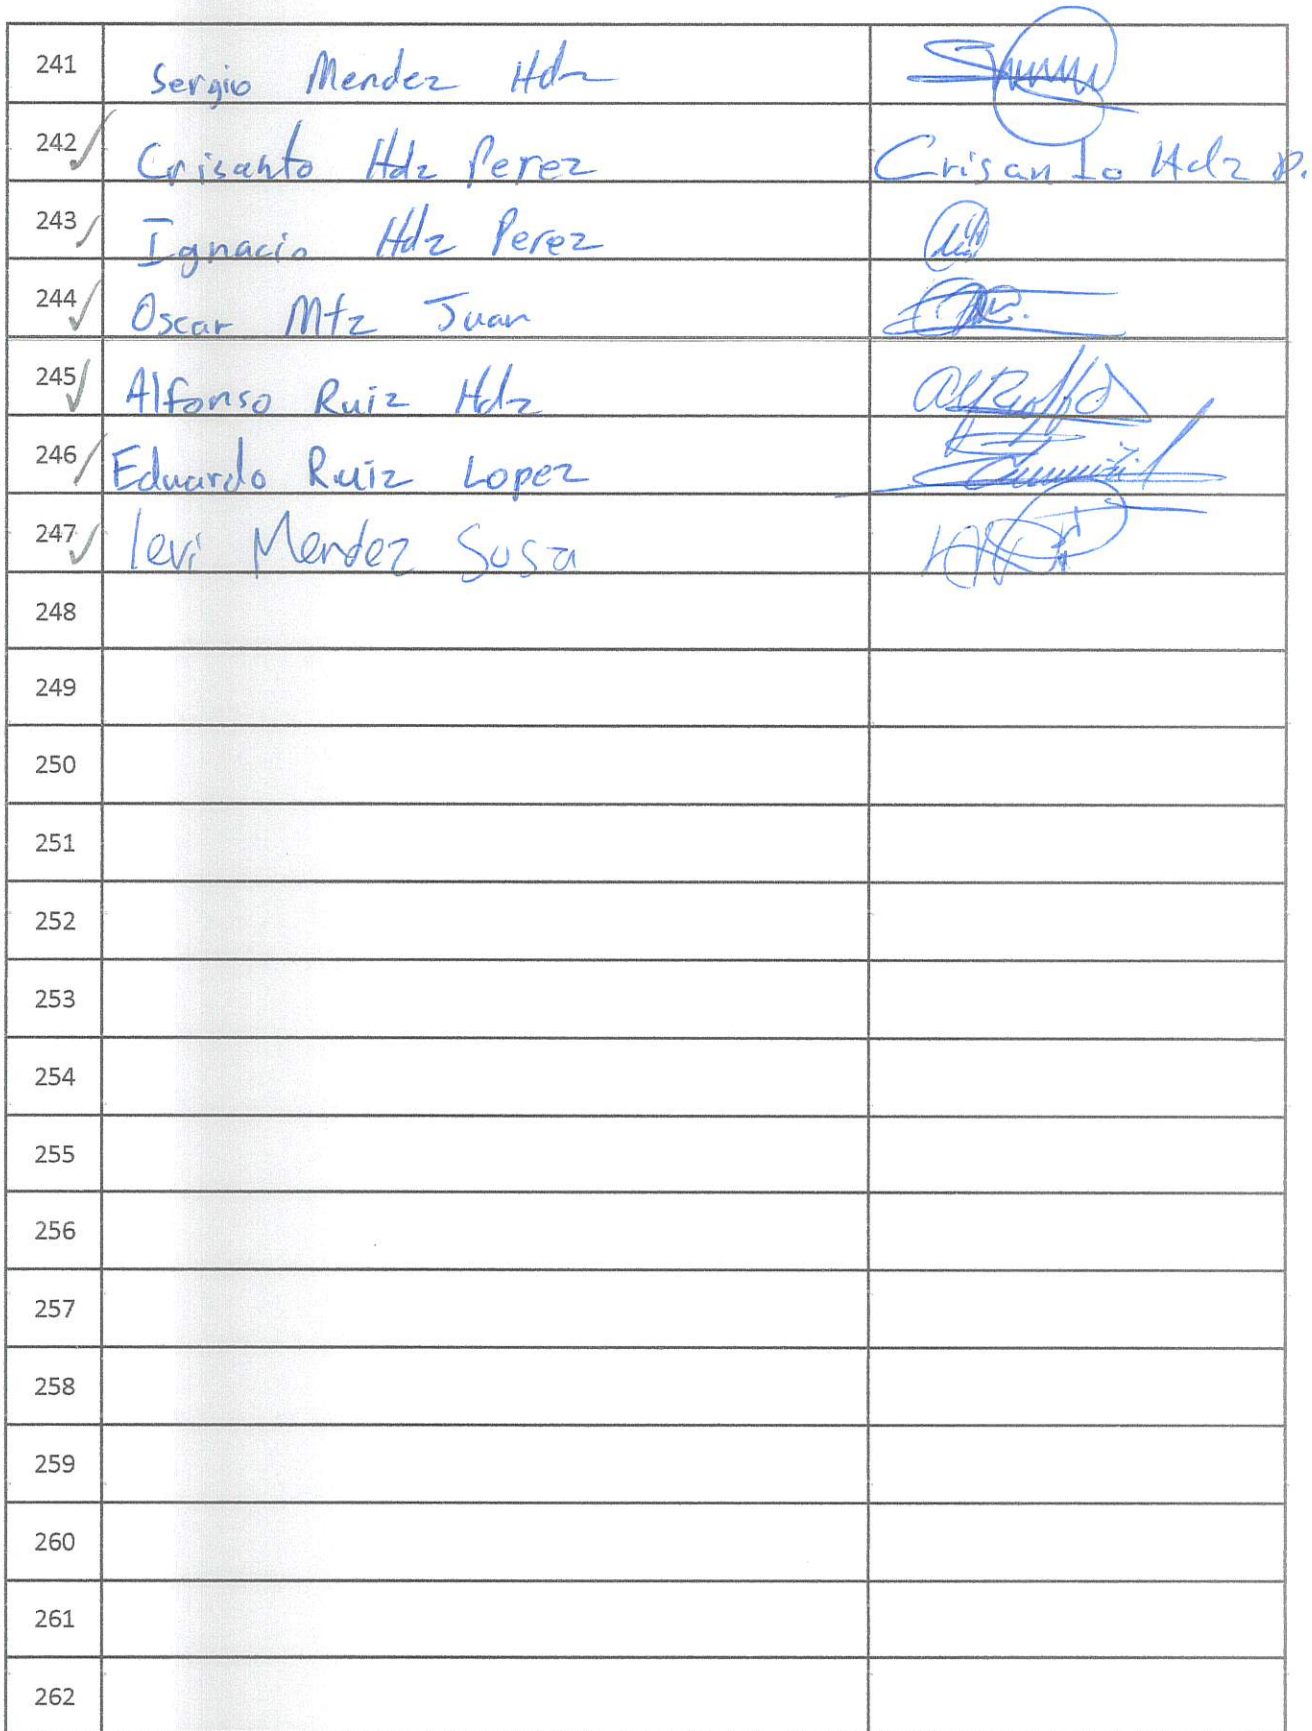 241 Sergio Mendez Hdz
242 Crisanto Hdz Perez Crisanto Hdz P.
243 Ignacio Hdz Perez
244 Oscar Mtz Juan
245 Alfonso Ruiz Hdz
246 Eduardo Ruiz Lopez
247 levi Mendez Susa
248
249
250
251
252
253
254
255
256
257
258
259
260
261
262